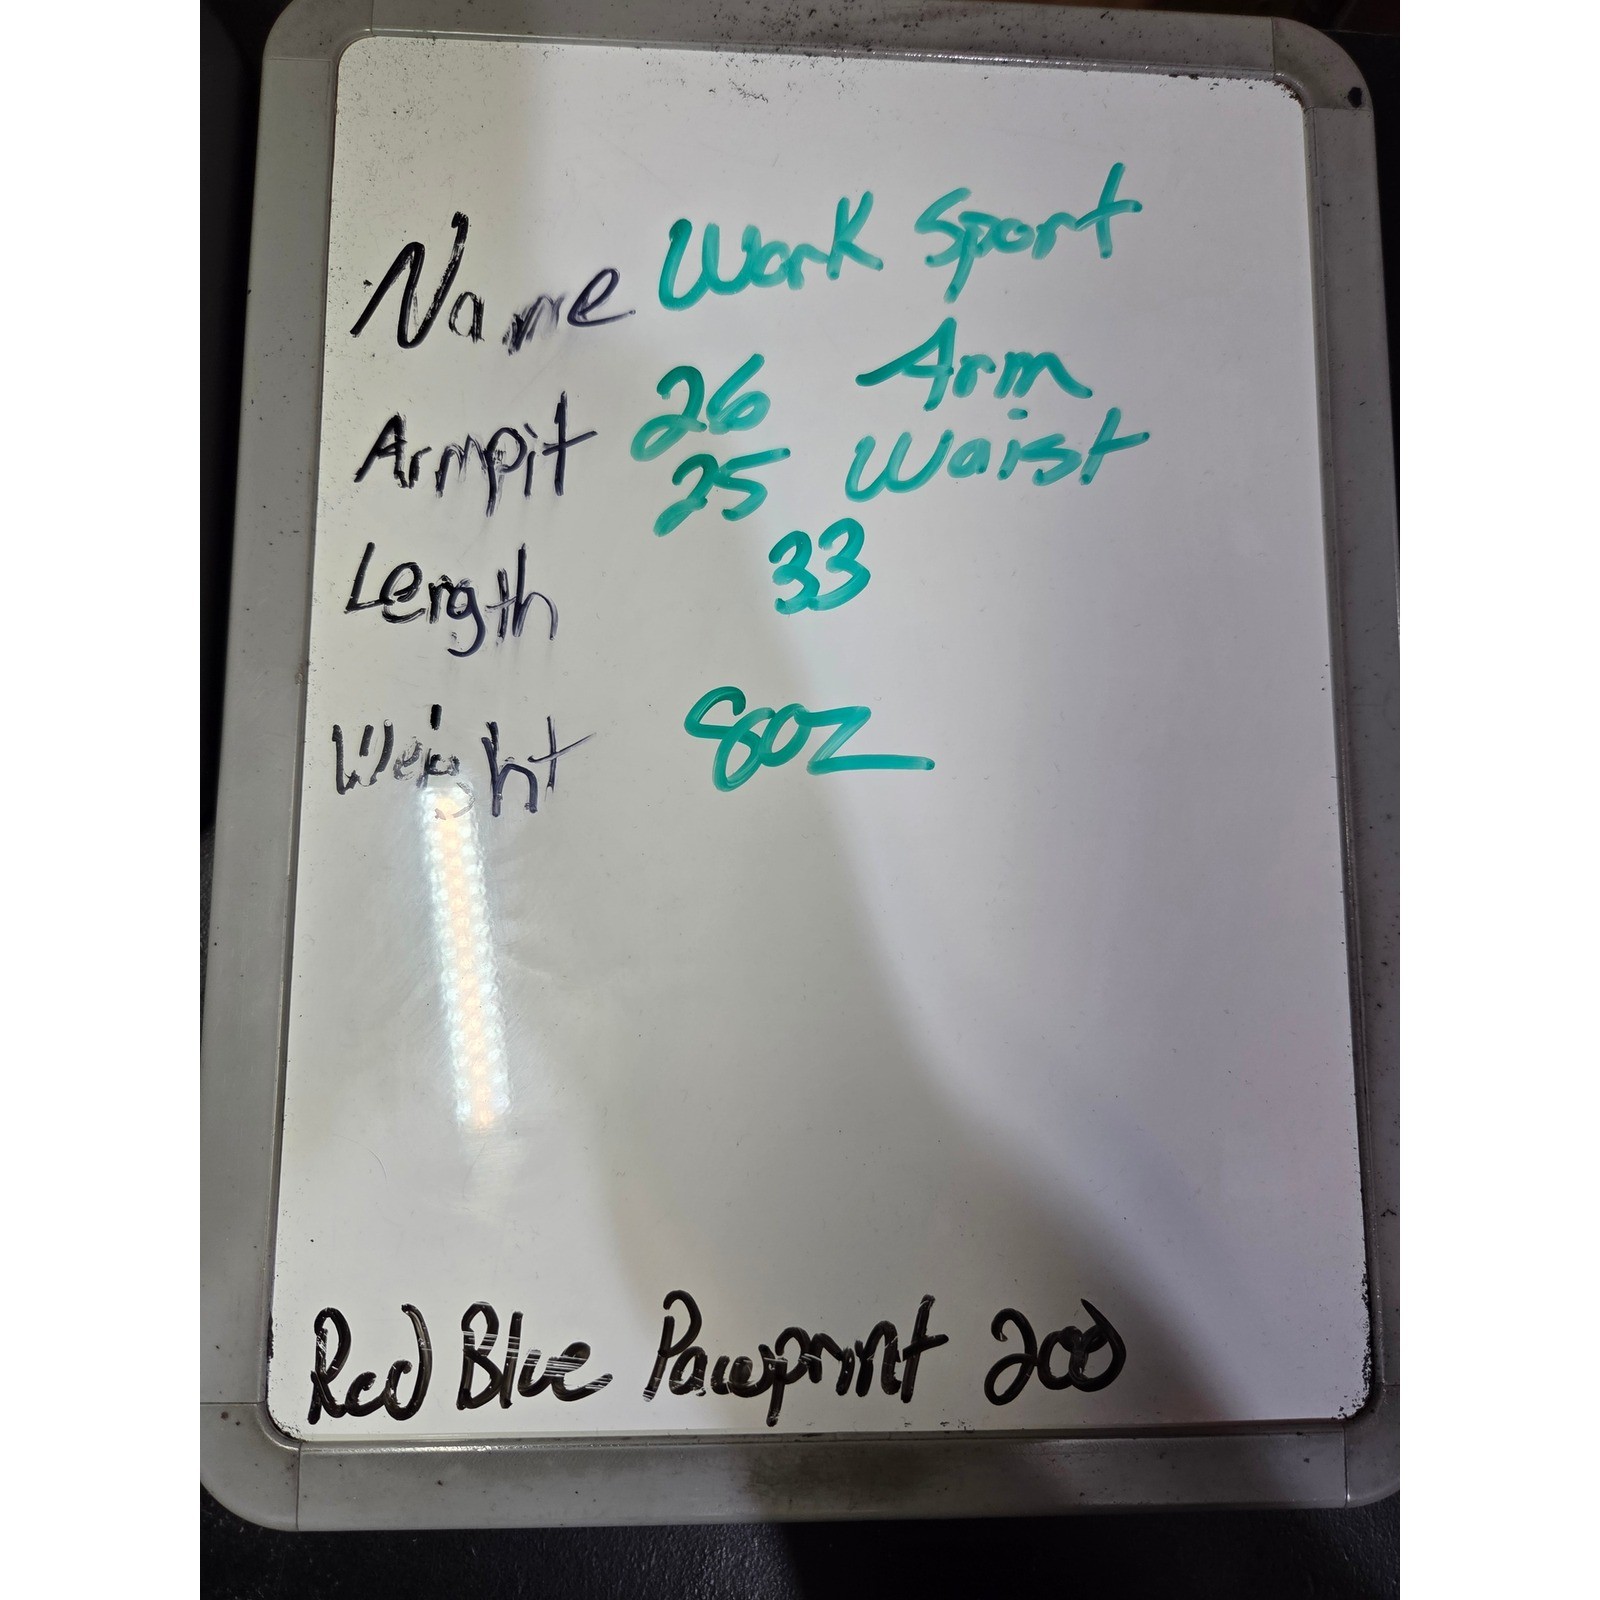 Name Work Sport
Armpit 26 Arm
25 Waist
Length 33
Weight 8oz
Red Blue Pawprint 200